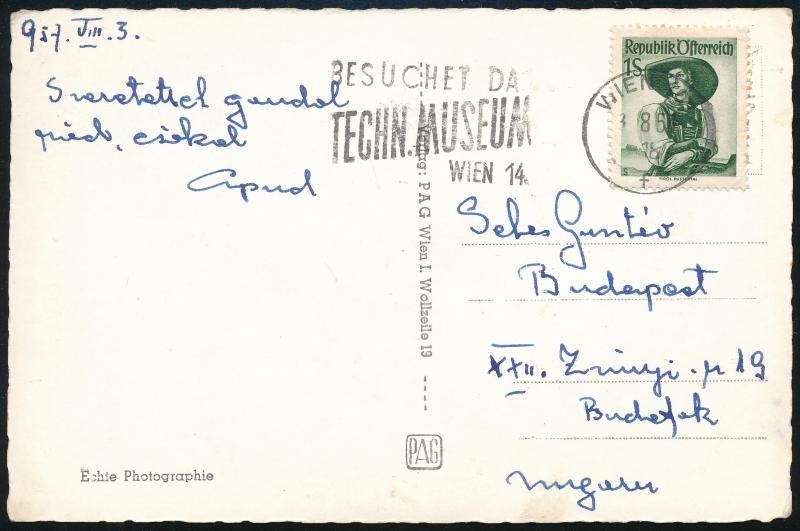 957. VIII. 3.
Szeretettel gondol
rád, csókol
Apud
BESUCHET DAS
TECHN. MUSEUM
WIEN 14.
Republik Österreich
1S
TIROL PASSEIERTAL
WIEN
Verlag: PAG Wien I. Wollzeile 19
Sebes Gusztáv
Budapest
XXII. Zrínyi u 19
Budafok
Ungarn
PAG
Echte Photographie